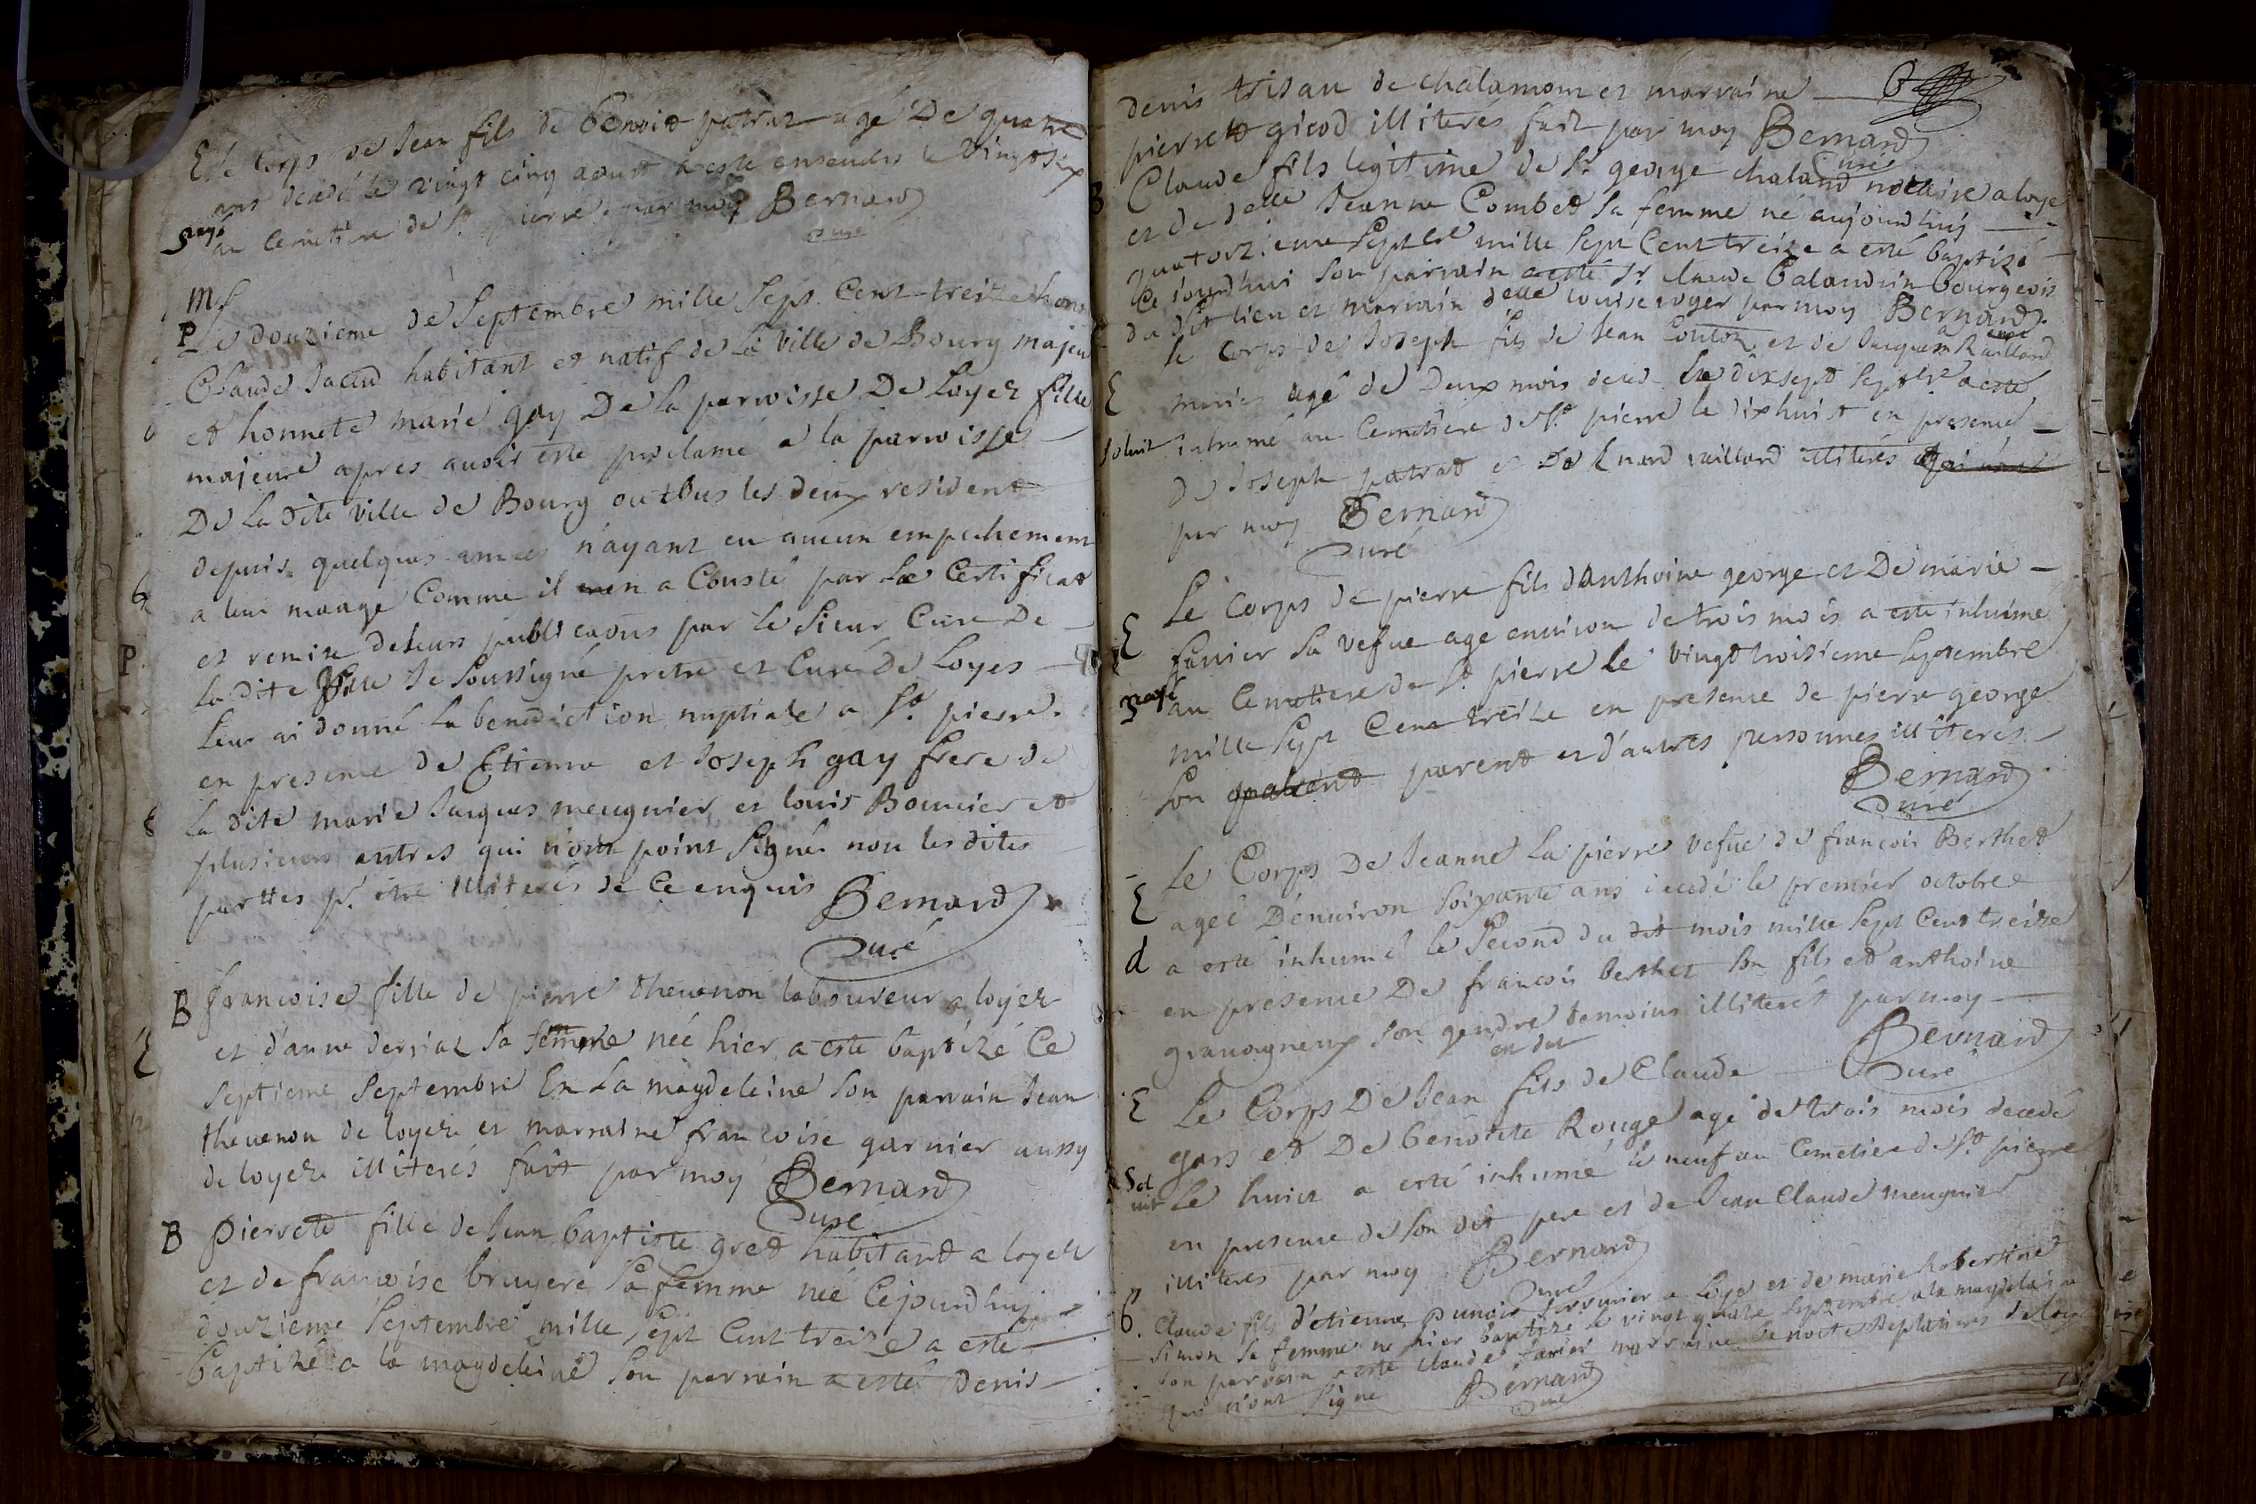 E le Corps de Jean fils de Benoit patrat agé De quatre
ans decedé le vingt cinq aoust a esté enseueli le vingt six
payé au Cemetiere de St pierre par moy Bernard
Curé
M
P Le douzieme de Septembre mille Sept Cent treize hon
Claude Jacud habitant et natif de la ville de Bourg majeu
et honnete marie gay De la parroisse De Loyez fille
majeure apres auoir esté proclamé a la parroisse
De la dite ville de Bourg ou tous les deux resident
depuis quelques années n'ayant eu aucun empechement
a leur mariage Comme il m'en a Consté par le Certificat
et remise de leurs publicaons par le Sieur Curé De
la dite Ville Je Soussigné pretre et Curé de Loyes
leur ai donné la benediction nuptiale a St pierre
en presence de Etienne et Joseph gay frere de
la dite marie Jacques meugnier et louis Bouuier et
plusieurs autres qui n'ont point Signé non les dites
parttes pr etre illiterés de ce enquis Bernard
Curé
B francoise fille de pierre theuenon laboureur a loyez
E et d'anne derriaz sa femme née hier a esté baptizé Ce
Septieme Septembre En La magdeleine Son parrain Jean
theuenon de loyez et marraine francoise garnier aussy
de loyez illiterés fait par moy Bernard
Curé
B pierrete fille de Jean baptiste gred habitand a loyez
et de francoise bruyere sa femme née Cejourdhuy
douzieme Septembre mille Sept Cent treize a esté
baptizé a la magdeleine Son parrain a esté Denis
denis trisau de chalamont et marraine
pierrett gicod illiterés fait par moy Bernard
Curé
B Claude fils legitime de Sr george chaland nottaire a loye
et de delle Jeanne Combet sa femme né aujourdhuy
quatorzieme Septbre mille Sept Cent treize a esté baptizé
Ce jourdhui Son parrain a esté Sr claude balandrin bourgeois
du dit lieu et marrain delle louise roger par moy Bernard
Curé
E le Corps de Joseph fils de Jean Couton et de Jacquem Raillard
mariés agé de Deux mois deced le dixsept Septbre a esté
soluit inhumé au Cemetiere de St pierre le dixhuict en presence
de Joseph patrat et De Enard raillard illiterés
par moy Bernard
Curé
E Le Corps de pierre fils d'anthoine george et De marie
fanier Sa vefue agé enuiron de trois mois a esté inhumé
payé au Cemettiere de St pierre le vingt troisieme Septembre
mille Sept Cent treize en presence de pierre george
Son parent et d'autres personnes illiteres
Bernard
Curé
E Le Corps De Jeanne la pierre vefue de francois Berthet
d agée D'enuiron Soixante ans decedé le premier octobre
a esté inhumé le Second du dit mois mille Sept Cent treize
en presence De francois berthet Son fils et anthoine
grauagneux Son gendre temoins illiterés par moy
Bernard
Curé
E Le Corps De Jean fils de Claude
gars et De benoitte Rouge agé de trois mois decedé
Sol
uit Le huict a esté inhumé le neuf au Cemetiere de St pierre
en presence de Son dit pere et de Jean Claude meugnier
illiteres par moy Bernard
Curé
B. Claude fils d'etienne punois serrurier a Loye et de marie Robertine
Simon Sa femme né hier baptizé le vingt quatre Septembre a la magdelaine
Son parrain a esté Claude farier marraine benoite desplanches de loy
qui n'ont Signé Bernard
Curé